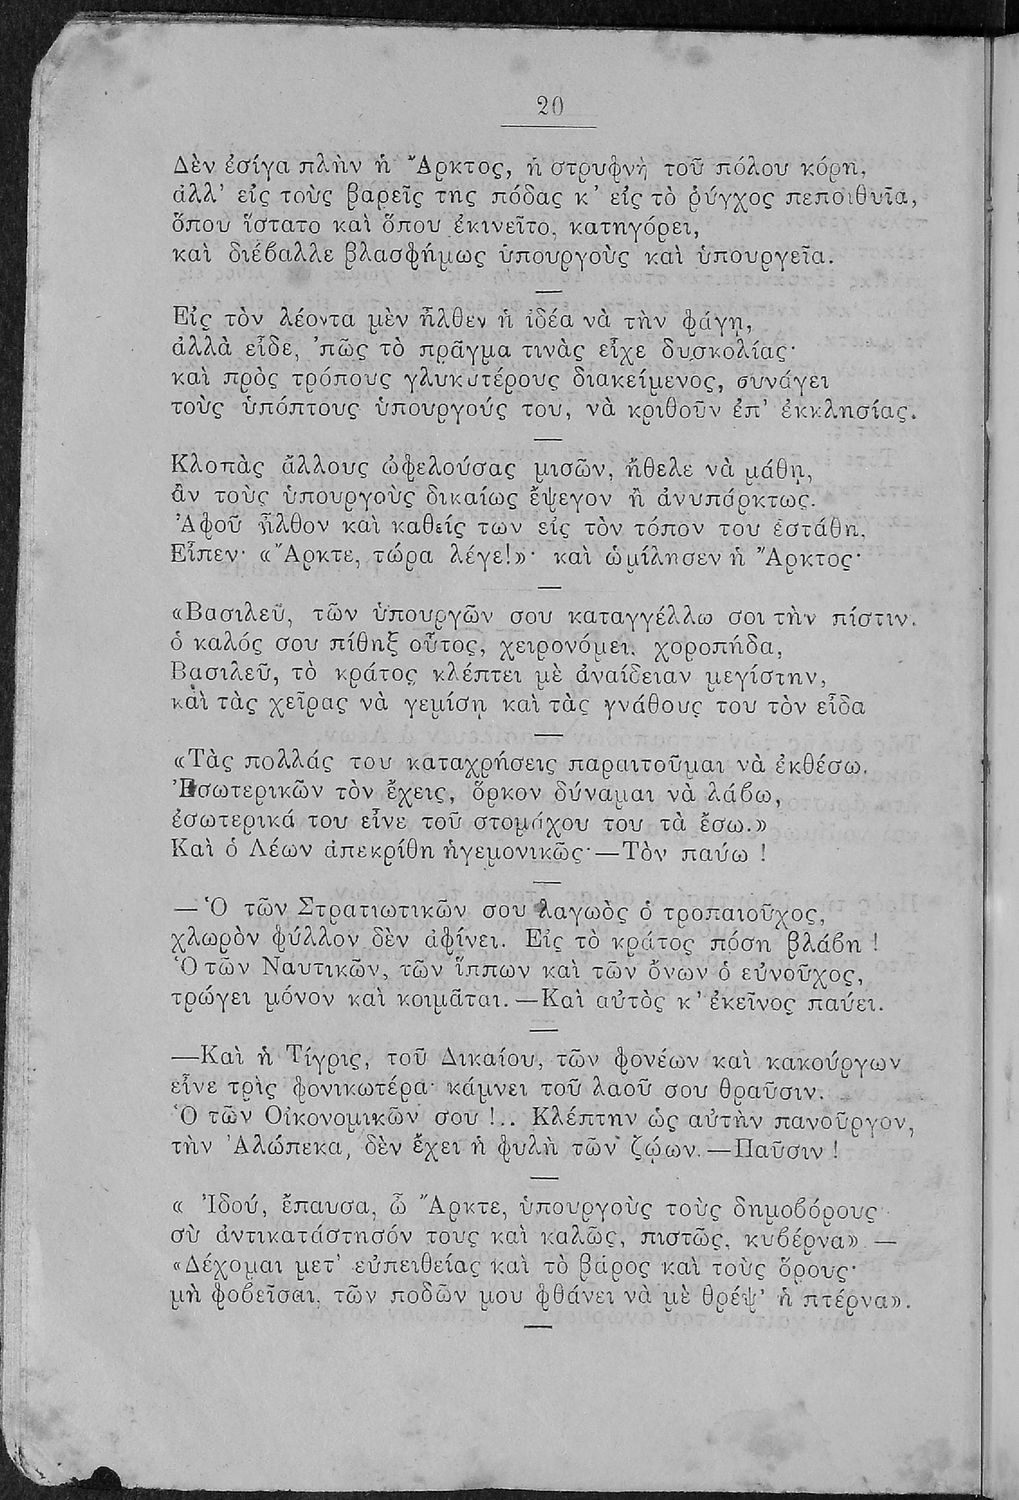 20
Δὲν ἐσίγα πλὴν ἡ Ἄρκτος, ἡ στρυφνὴ τοῦ πόλου κόρη,
ἀλλ’ εἰς τοὺς βαρεῖς της πόδας κ’ εἰς τὸ ῥύγχος πεποιθυῖα,
ὅπου ἵστατο καὶ ὅπου ἐκινεῖτο, κατηγόρει,
καὶ διέβαλλε βλασφήμως ὑπουργοὺς καὶ ὑπουργεῖα.
Εἰς τὸν λέοντα μὲν ἦλθεν ἡ ἰδέα νὰ τὴν φάγῃ,
ἀλλὰ εἶδε, ’πῶς τὸ πρᾶγμα τινὰς εἶχε δυσκολίας·
καὶ πρὸς τρόπους γλυκυτέρους διακείμενος, συνάγει
τοὺς ὑπόπτους ὑπουργούς του, νὰ κριθοῦν ἐπ’ ἐκκλησίας.
Κλοπὰς ἄλλους ὠφελούσας μισῶν, ἤθελε νὰ μάθῃ,
ἂν τοὺς ὑπουργοὺς δικαίως ἔψεγον ἢ ἀνυπάρκτως.
Ἀφοῦ ἦλθον καὶ καθείς των εἰς τὸν τόπον του ἐστάθη,
Εἶπεν· «Ἄρκτε, τώρα λέγε!»· καὶ ὡμίλησεν ἡ Ἄρκτος·
«Βασιλεῦ, τῶν ὑπουργῶν σου καταγγέλλω σοι τὴν πίστιν.
ὁ καλός σου πίθηξ οὗτος, χειρονόμει, χοροπήδα,
Βασιλεῦ, τὸ κράτος κλέπτει μὲ ἀναίδειαν μεγίστην,
καὶ τὰς χεῖρας νὰ γεμίσῃ καὶ τὰς γνάθους του τὸν εἶδα
«Τὰς πολλάς του καταχρήσεις παραιτοῦμαι νὰ ἐκθέσω.
Ἐσωτερικῶν τὸν ἔχεις, ὅρκον δύναμαι νὰ λάβω,
ἐσωτερικά του εἶνε τοῦ στομάχου του τὰ ἔσω.»
Καὶ ὁ Λέων ἀπεκρίθη ἡγεμονικῶς·—Τὸν παύω !
— Ὁ τῶν Στρατιωτικῶν σου λαγωὸς ὁ τροπαιοῦχος,
χλωρὸν φύλλον δὲν ἀφίνει. Εἰς τὸ κράτος πόση βλάβη !
Ὁ τῶν Ναυτικῶν, τῶν ἵππων καὶ τῶν ὄνων ὁ εὐνοῦχος,
τρώγει μόνον καὶ κοιμᾶται.—Καὶ αὐτὸς κ’ ἐκεῖνος παύει.
—Καὶ ἡ Τίγρις, τοῦ Δικαίου, τῶν φονέων καὶ κακούργων
εἶνε τρὶς φονικωτέρα· κάμνει τοῦ λαοῦ σου θραῦσιν.
Ὁ τῶν Οἰκονομικῶν σου !.. Κλέπτην ὡς αὐτὴν πανοῦργον,
τὴν Ἀλώπεκα, δὲν ἔχει ἡ φυλὴ τῶν ζῴων.—Παῦσιν !
« Ἰδού, ἔπαυσα, ὦ Ἄρκτε, ὑπουργοὺς τοὺς δημοβόρους·
σὺ ἀντικατάστησόν τους καὶ καλῶς, πιστῶς, κυβέρνα» —
«Δέχομαι μετ’ εὐπειθείας καὶ τὸ βάρος καὶ τοὺς ὅρους·
μὴ φοβεῖσαι, τῶν ποδῶν μου φθάνει νὰ μὲ θρέψ’ ἡ πτέρνα».